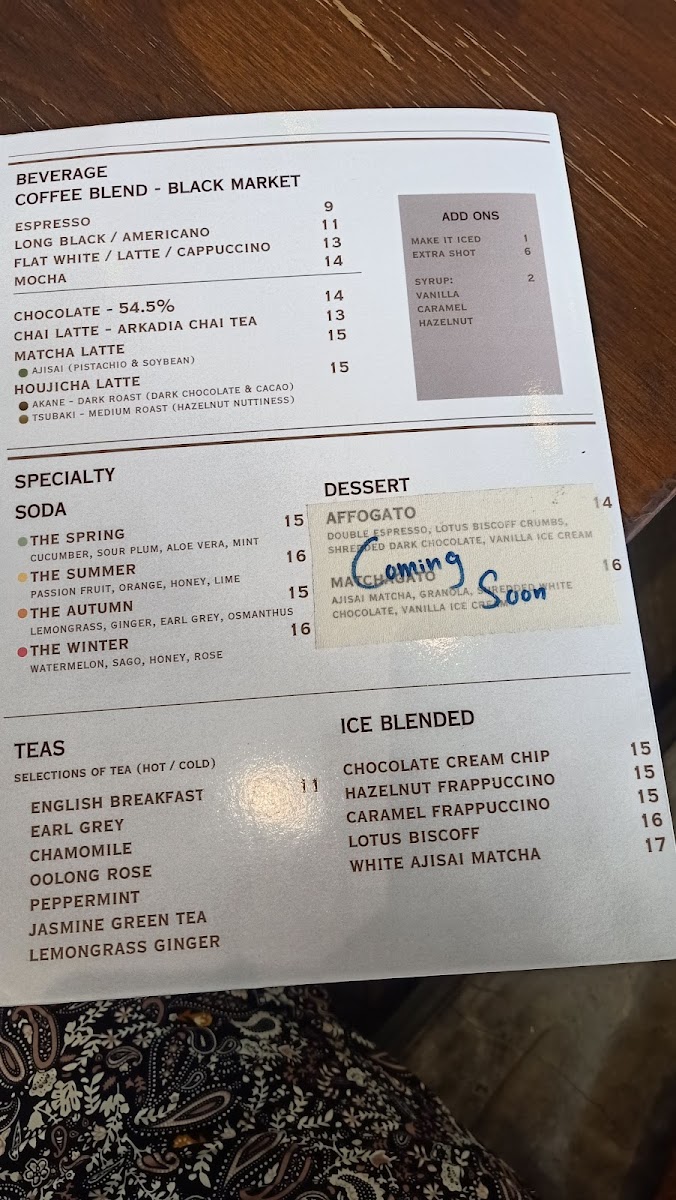 BEVERAGE
COFFEE BLEND - BLACK MARKET
ESPRESSO 9
LONG BLACK / AMERICANO 11
FLAT WHITE / LATTE / CAPPUCCINO 13
MOCHA 14
CHOCOLATE - 54.5% 14
CHAI LATTE - ARKADIA CHAI TEA 13
MATCHA LATTE 15
AJISAI (PISTACHIO & SOYBEAN)
HOUJICHA LATTE 15
AKANE - DARK ROAST (DARK CHOCOLATE & CACAO)
TSUBAKI - MEDIUM ROAST (HAZELNUT NUTTINESS)
ADD ONS
MAKE IT ICED 1
EXTRA SHOT 6
SYRUP: 2
VANILLA
CARAMEL
HAZELNUT
SPECIALTY
SODA
THE SPRING 15
CUCUMBER, SOUR PLUM, ALOE VERA, MINT
THE SUMMER 16
PASSION FRUIT, ORANGE, HONEY, LIME
THE AUTUMN 15
LEMONGRASS, GINGER, EARL GREY, OSMANTHUS
THE WINTER 16
WATERMELON, SAGO, HONEY, ROSE
DESSERT
AFFOGATO 14
DOUBLE ESPRESSO, LOTUS BISCOFF CRUMBS,
SHREDDED DARK CHOCOLATE, VANILLA ICE CREAM
Coming
Soon
MATCHAGATO 16
AJISAI MATCHA, GRANOLA, SHREDDED WHITE
CHOCOLATE, VANILLA ICE CREAM
TEAS
SELECTIONS OF TEA (HOT / COLD)
ENGLISH BREAKFAST 11
EARL GREY
CHAMOMILE
OOLONG ROSE
PEPPERMINT
JASMINE GREEN TEA
LEMONGRASS GINGER
ICE BLENDED
CHOCOLATE CREAM CHIP 15
HAZELNUT FRAPPUCCINO 15
CARAMEL FRAPPUCCINO 15
LOTUS BISCOFF 16
WHITE AJISAI MATCHA 17